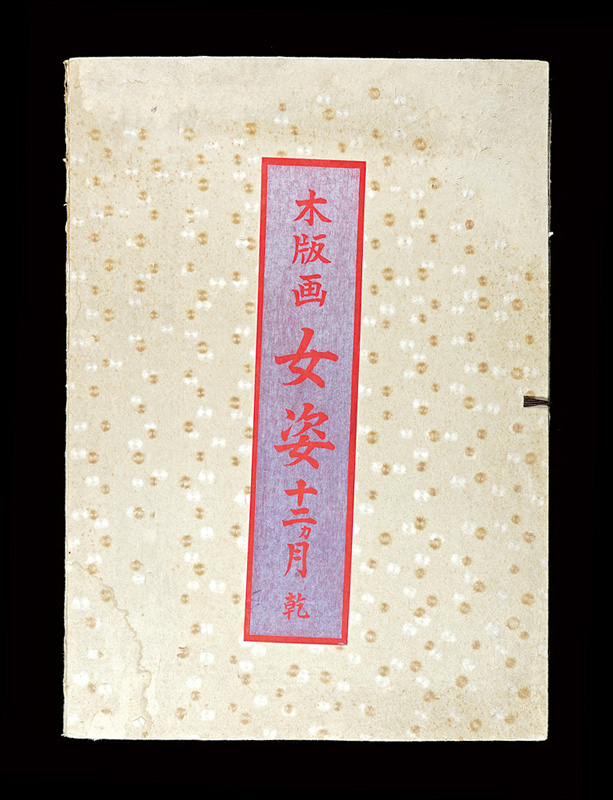 木版画 女姿 十二ヵ月 乾